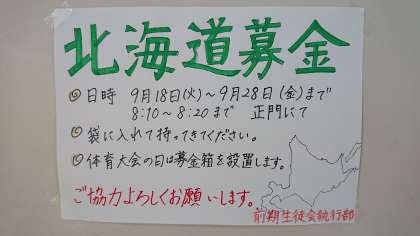 北海道募金
◎日時 9月18日(火)～9月28日(金)まで
8:10～8:20まで 正門にて
◎袋に入れて持ってきてください。
◎体育大会の日は募金箱を設置します。
ご協力よろしくお願いします。
前期生徒会執行部